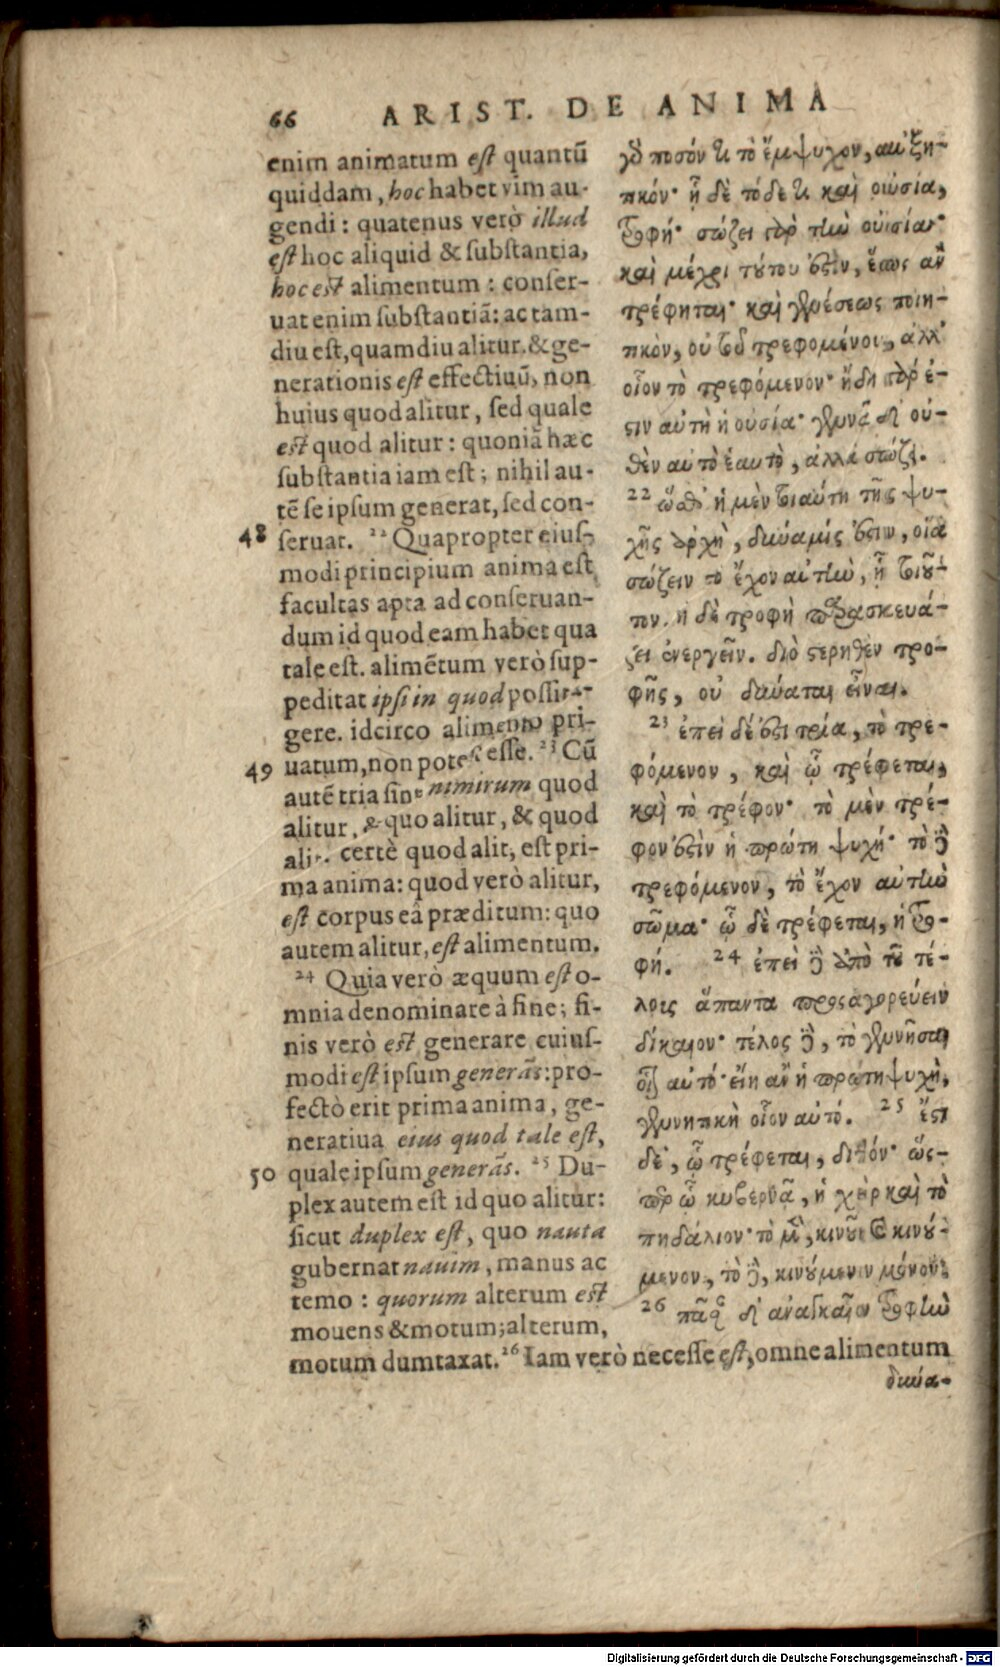 66 ARIST. DE ANIMA
enim animatum est quantū
quiddam, hoc habet vim au-
gendi: quatenus verò illud
est hoc aliquid & substantia,
hoc est alimentum: conser-
uat enim substantiā: ac tam-
diu est, quamdiu alitur. & ge-
nerationis est effectiuū, non
huius quod alitur, sed quale
est quod alitur: quoniā hæc
substantia iam est; nihil au-
tē se ipsum generat, sed con-
48 seruat. 22 Quapropter eius-
modi principium anima est
facultas apta ad conseruan-
dum id quod eam habet qua
tale est. alimētum verò sup-
peditat ipsi in quod possit a-
gere. idcirco alimento pri-
49 uatum, non potest esse. 23 Cū
autē tria sint nimirum quod
alitur, & quo alitur, & quod
alit. certè quod alit, est pri-
ma anima: quod verò alitur,
est corpus eâ præditum: quo
autem alitur, est alimentum.
24 Quia verò æquum est o-
mnia denominare à fine; fi-
nis verò est generare cuius-
modi est ipsum generās: pro-
fectò erit prima anima, ge-
neratiua eius quod tale est,
50 quale ipsum generās. 25 Du-
plex autem est id quo alitur:
sicut duplex est, quo nauta
gubernat nauim, manus ac
temo: quorum alterum est
mouens & motum; alterum,
motum dumtaxat. 26 Iam verò necesse est, omne alimentum
γὸ ποσόν τι τὸ ἔμψυχον, αὐξη-
τικόν· ᾗ δὲ τόδε τι καὶ οὐσία,
τροφή· σώζει γὰρ τὴν οὐσίαν·
καὶ μέχρι τούτου ἐστὶν, ἕως ἂν
τρέφηται· καὶ γενέσεως ποιη-
τικὸν, οὐ τοῦ τρεφομένου, ἀλλ'
οἷον τὸ τρεφόμενον· ἤδη γὰρ ἔ-
στιν αὐτὴ ἡ οὐσία· γεννᾷ δ' οὐ-
θὲν αὐτὸ ἑαυτὸ, ἀλλὰ σώζει.
22 ὥσθ' ἡ μὲν τοιαύτη τῆς ψυ-
χῆς ἀρχὴ, δύναμίς ἐστιν, οἵα
σώζειν τὸ ἔχον αὐτὴν, ᾗ τοιοῦ-
τον. ἡ δὲ τροφὴ παρασκευά-
ζει ἐνεργεῖν. διὸ στερηθὲν τρο-
φῆς, οὐ δύναται εἶναι.
23 ἐπεὶ δέ ἐστι τρία, τὸ τρε-
φόμενον, καὶ ᾧ τρέφεται,
καὶ τὸ τρέφον· τὸ μὲν τρέ-
φον ἐστὶν ἡ πρώτη ψυχή· τὸ δὲ
τρεφόμενον, τὸ ἔχον αὐτὴν
σῶμα· ᾧ δὲ τρέφεται, ἡ τρο-
φή. 24 ἐπεὶ δὲ ἀπὸ τοῦ τέ-
λους ἅπαντα προσαγορεύειν
δίκαιον· τέλος δὲ, τὸ γεννῆσαι
οἷον αὐτό· εἴη ἂν ἡ πρώτη ψυχὴ,
γεννητικὴ οἷον αὐτό. 25 ἔστι
δὲ, ᾧ τρέφεται, διττόν· ὥς-
περ ᾧ κυβερνᾷ, ἡ χεὶρ καὶ τὸ
πηδάλιον· τὸ μὲν, κινοῦν καὶ κινού-
μενον, τὸ δὲ, κινούμενον μόνον.
26 πᾶσαν δ' ἀναγκαῖον τροφὴν
δύνα-
Digitalisierung gefördert durch die Deutsche Forschungsgemeinschaft - DFG